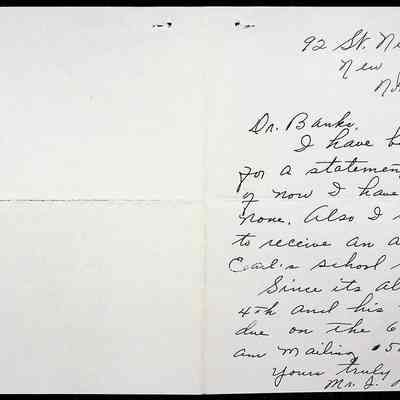 92 St. Ne
New
No
Dr. Banks,
I have be
for a statemen
of now I have
none. Also I
to receive an a
Cecil's school
Since its al
4th and his
due on the 6
am mailing $50
Yours truly
Mr. J.